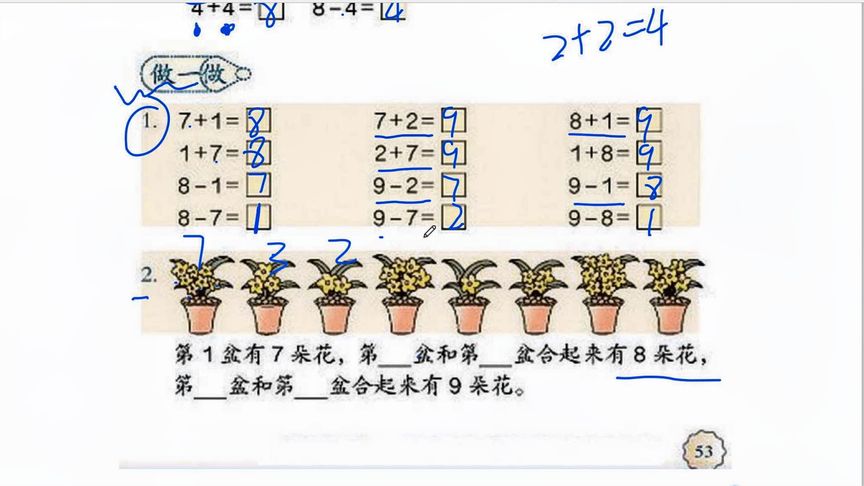 4+4=8 8-4=4
2+2=4
做一做
1. 7+1=8 7+2=9 8+1=9
1+7=8 2+7=9 1+8=9
8-1=7 9-2=7 9-1=8
8-7=1 9-7=2 9-8=1
7 3 2
2.
第1盆有7朵花，第__盆和第__盆合起来有8朵花，
第__盆和第__盆合起来有9朵花。
53